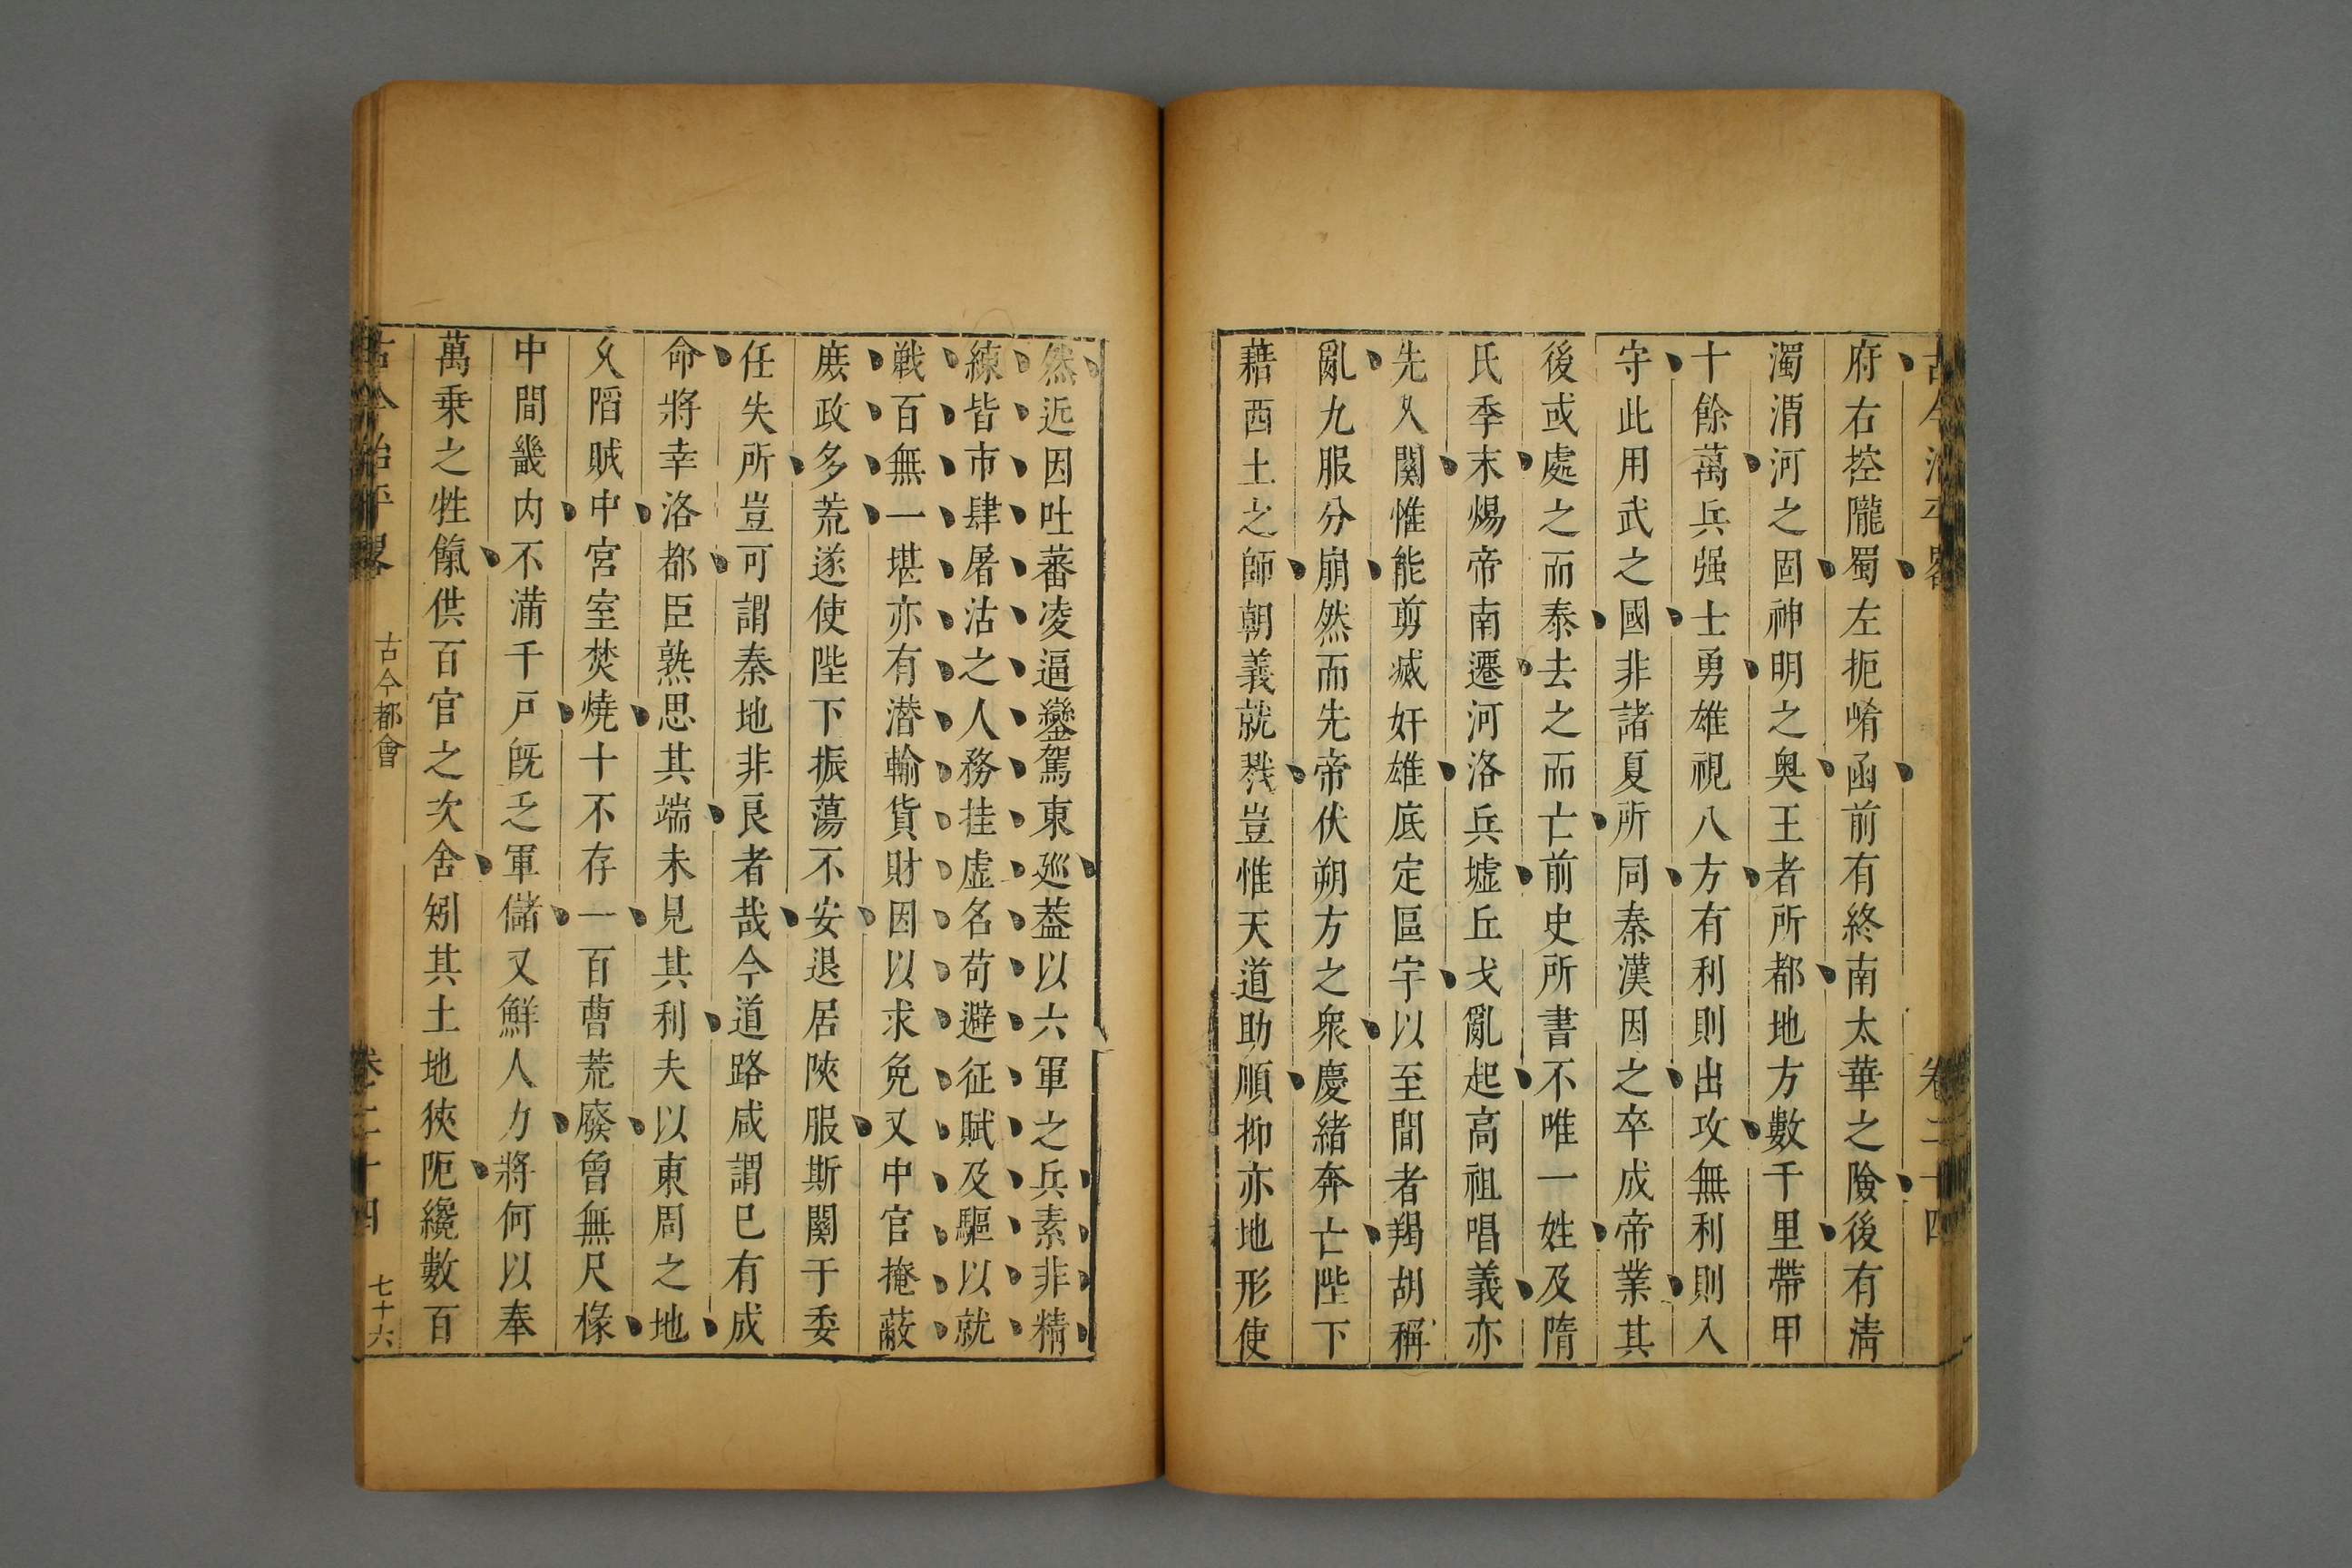 古今治平畧 卷二十四
府右控隴蜀左扼崤函前有終南太華之險後有淸
濁渭河之固神明之奥王者所都地方數千里帶甲
十餘萬兵强士勇雄視八方有利則出攻無利則入
守此用武之國非諸夏所同秦漢因之卒成帝業其
後或處之而泰去之而亡前史所書不唯一姓及隋
氏季末煬帝南遷河洛兵墟丘戈亂起高祖唱義亦
先入關惟能剪滅奸雄底定區宇以至間者羯胡稱
亂九服分崩然而先帝伏朔方之衆慶緖奔亡陛下
藉西土之師朝義就戮豈惟天道助順抑亦地形使
然近因吐蕃凌逼鑾駕東廵葢以六軍之兵素非精
練皆市肆屠沽之人務挂虛名苟避征賦及驅以就
戰百無一堪亦有潜輸貨財因以求免又中官掩蔽
庶政多荒遂使陛下振蕩不安退居陜服斯關于委
任失所豈可謂秦地非良者哉今道路咸謂已有成
命將幸洛都臣熟思其端未見其利夫以東周之地
乆䧟賊中宮室焚燒十不存一百曹荒廢曾無尺椽
中間畿内不滿千戸旣乏軍儲又鮮人力將何以奉
萬乘之牲餼供百官之次舍矧其土地狹阨纔數百
古今治平畧 古今都會 卷二十四 七十六